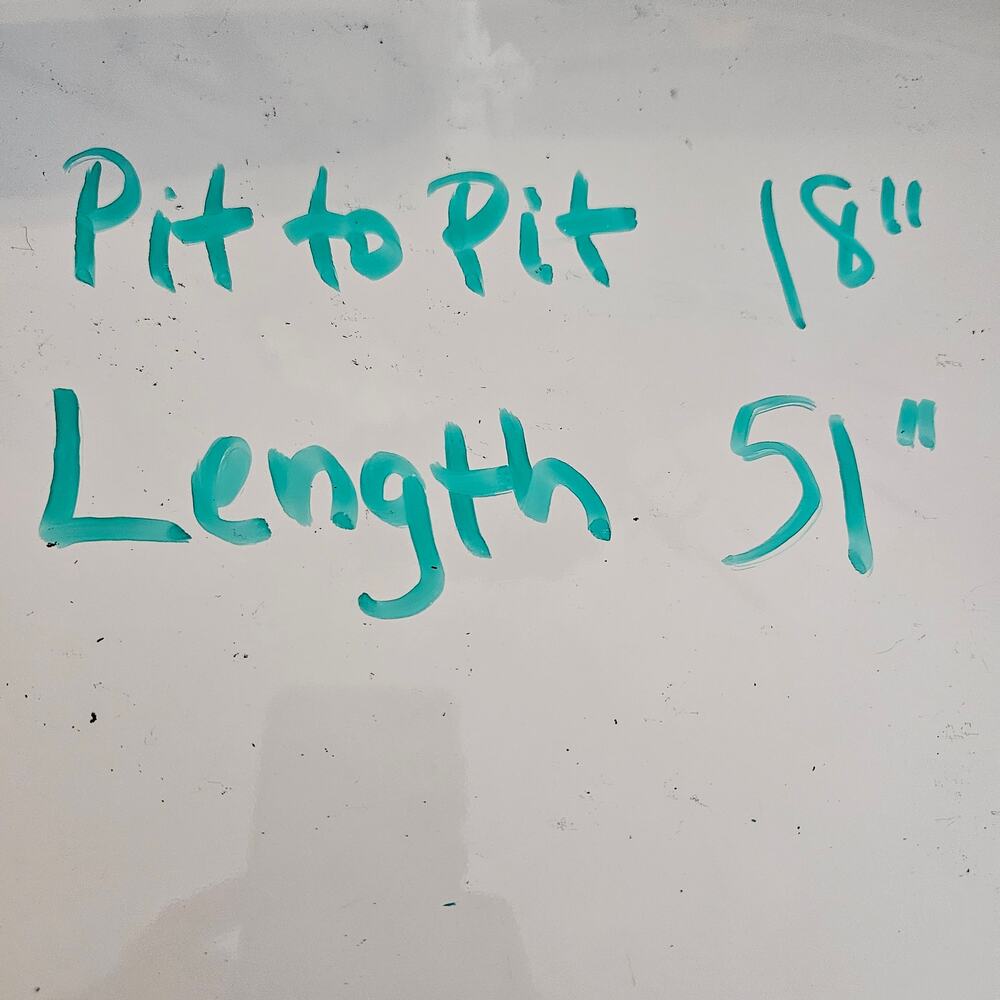 Pit to Pit 18"
Length 51"